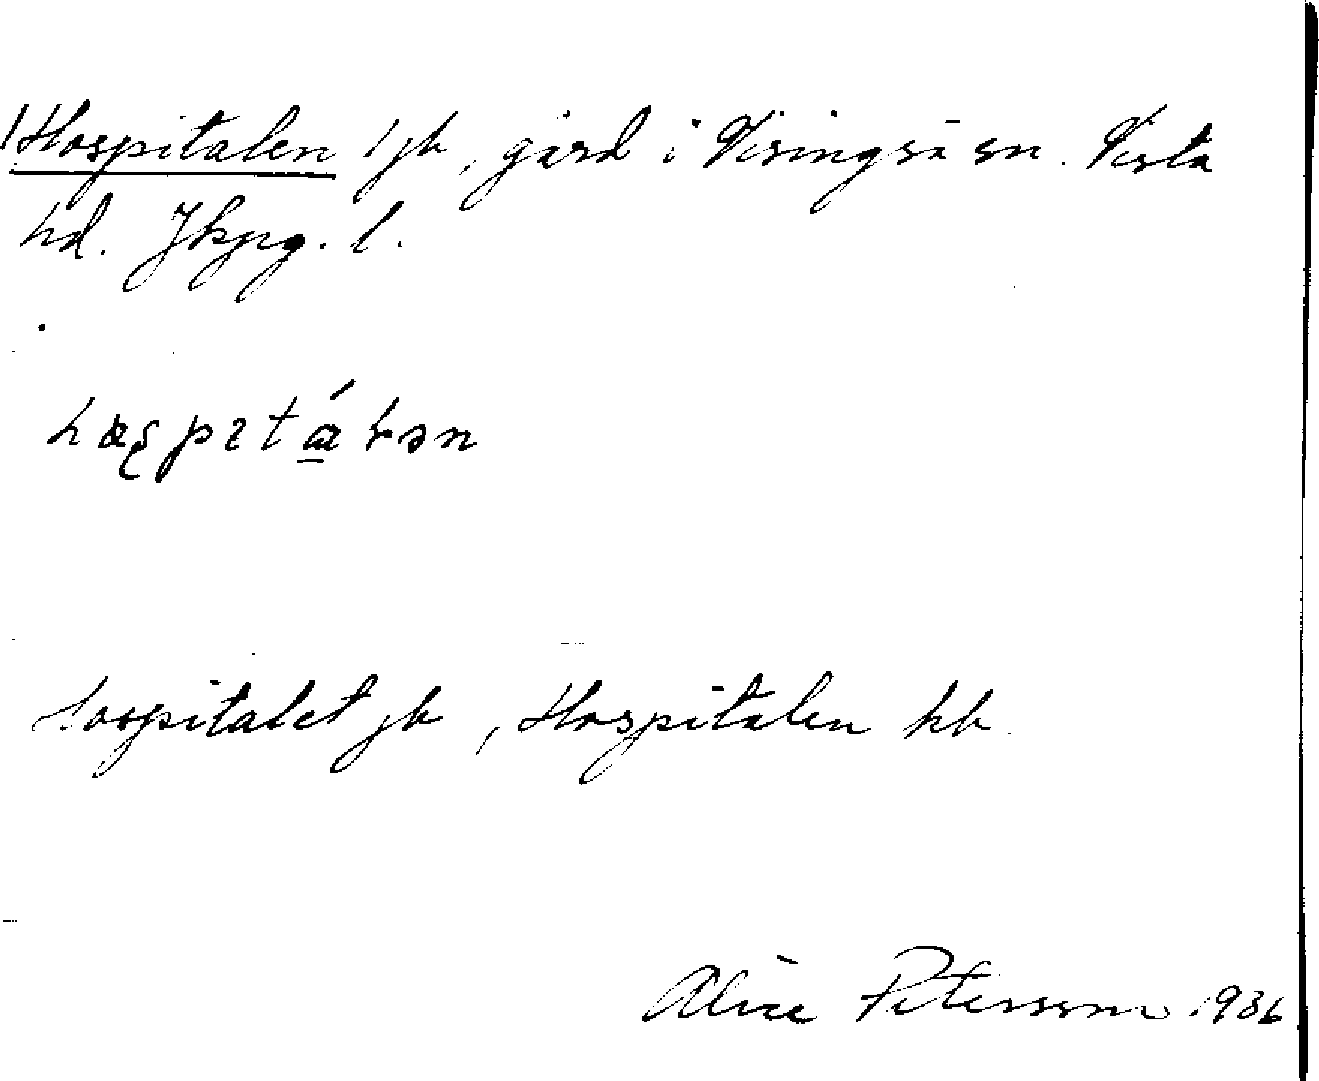 Hospitalen 1 jb, gård i Visingsö sn. Vista
hd. Jkpg. l.
Hospitalet jb, Hospitalen kb
Alice Petersson 1936